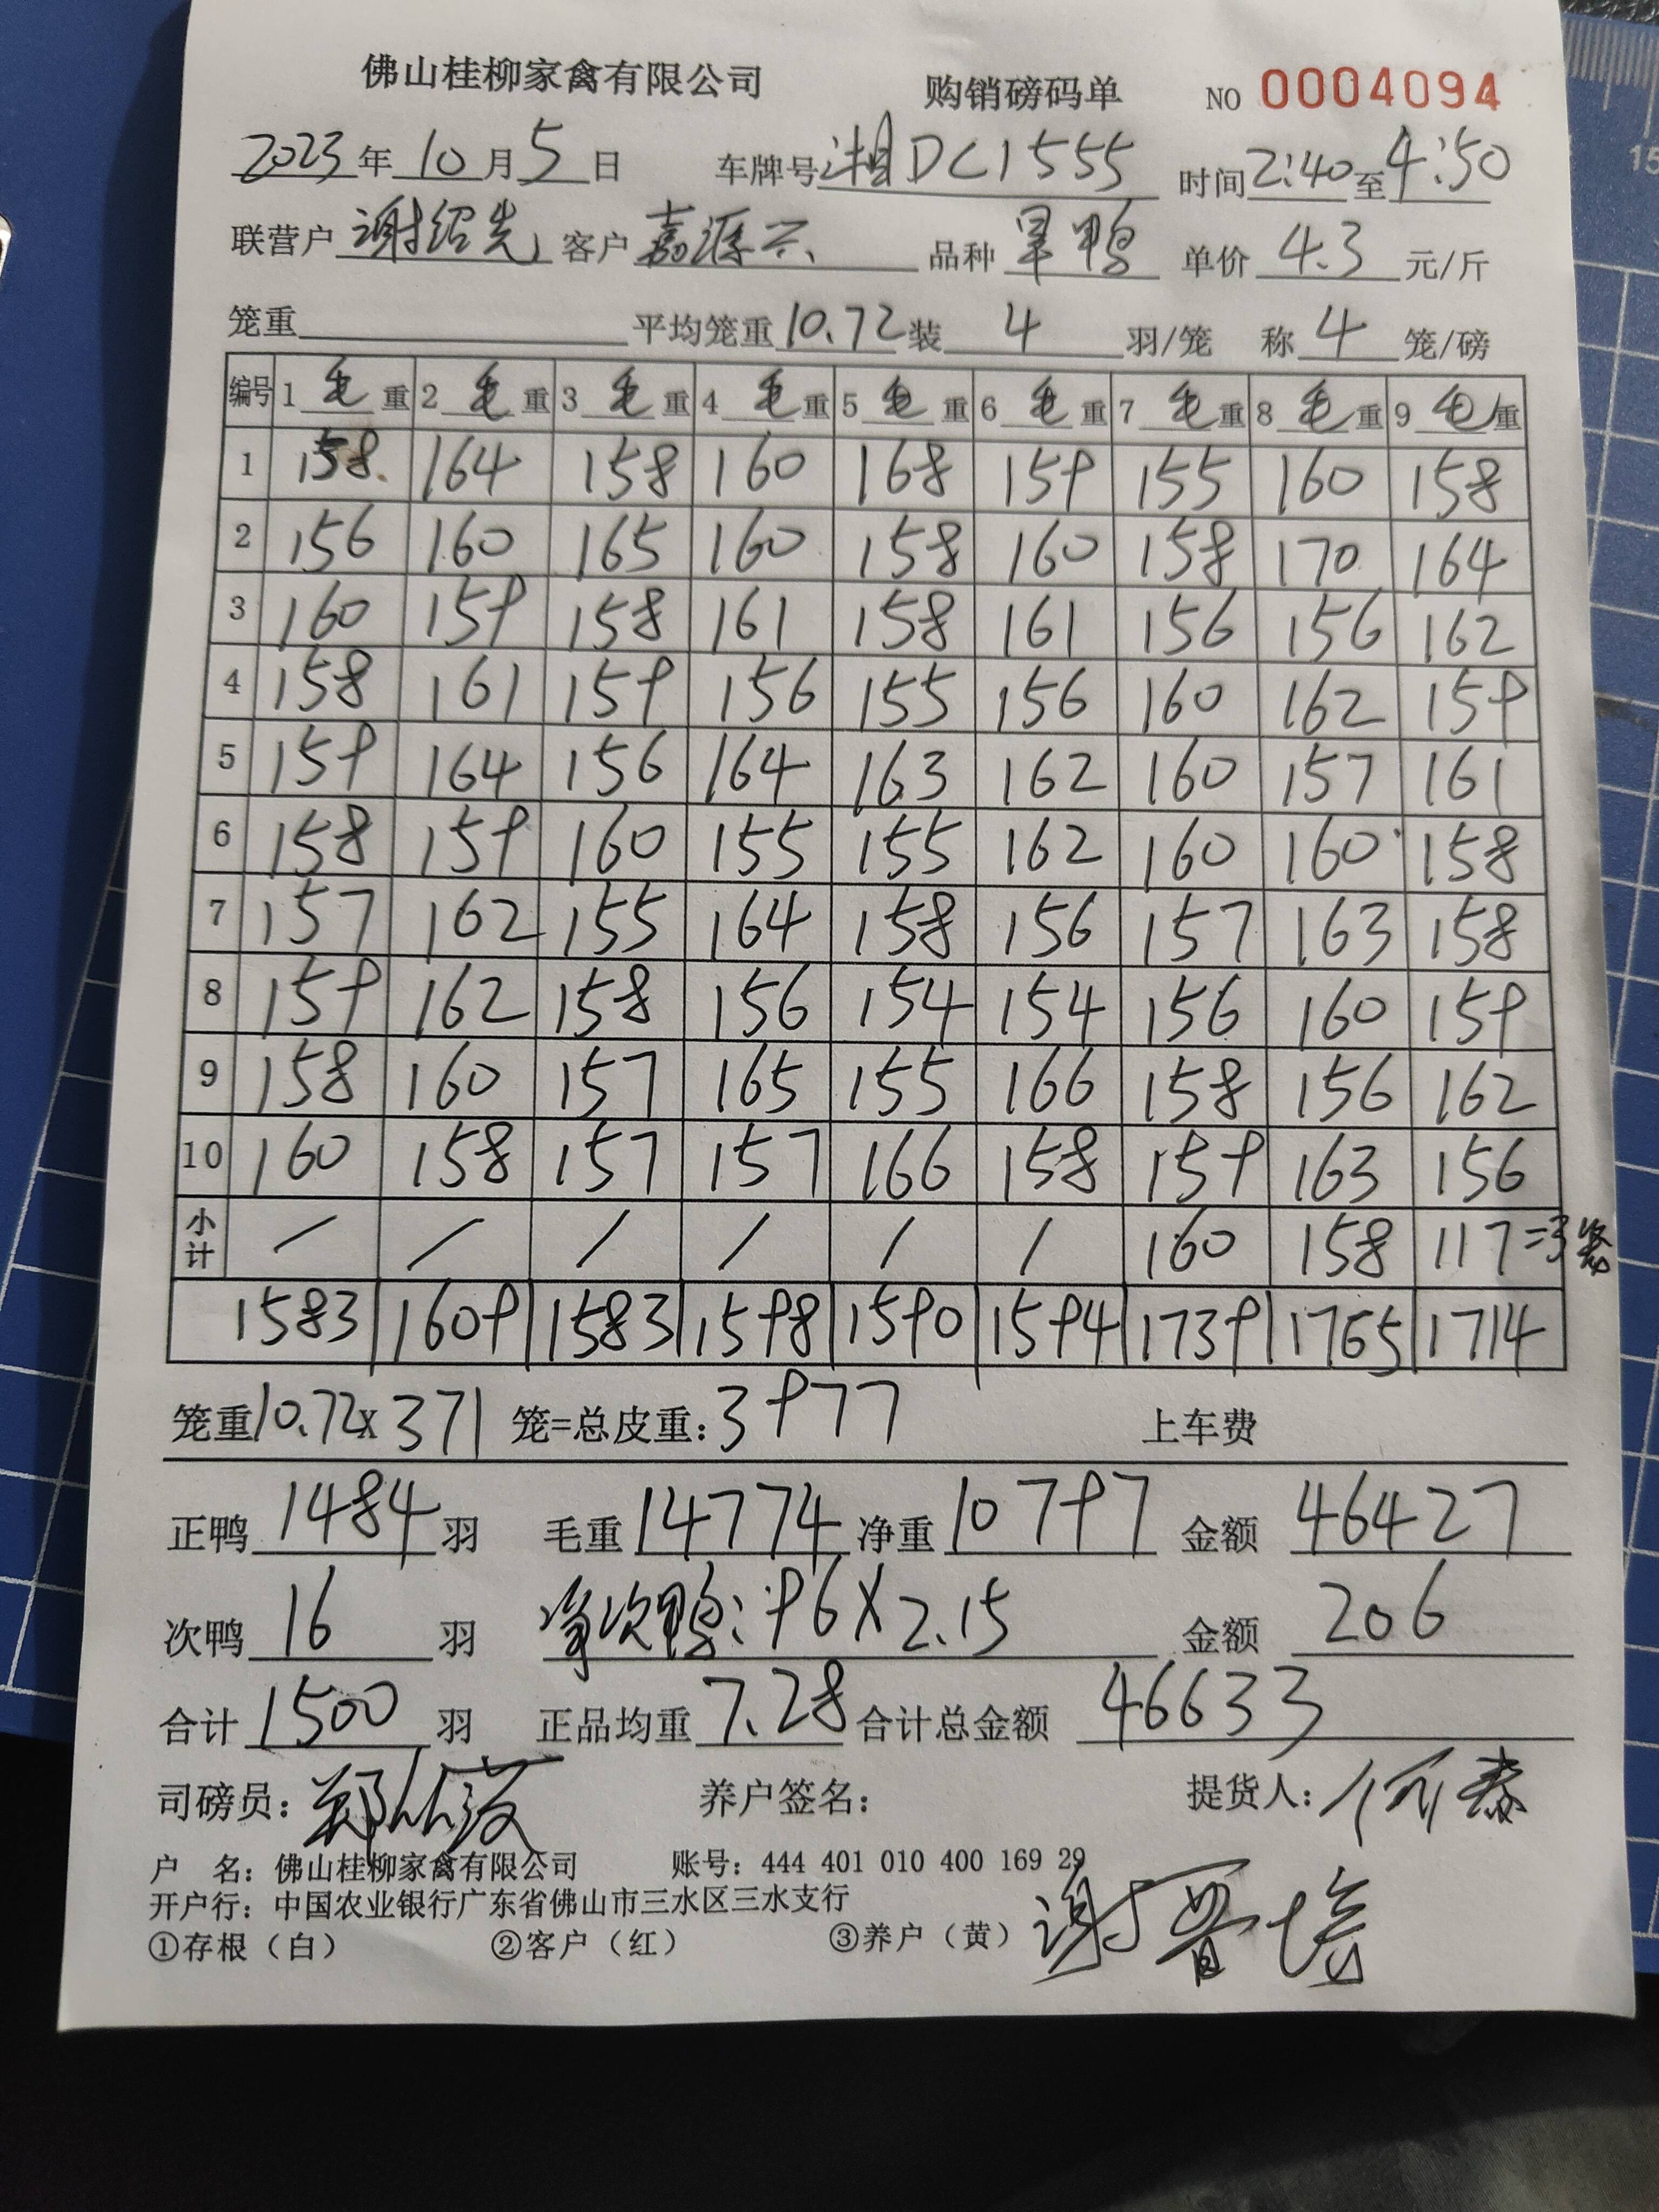 佛山桂柳家禽有限公司 购销磅码单 NO 0004094
2023年10月5日 车牌号湘DC1555 时间2:40至4:50
联营户 谢绍先 客户 嘉源六 品种 旱鸭 单价 4.3 元/斤
笼重 平均笼重10.72装 4 羽/笼 称 4 笼/磅
编号 1毛重 2毛重 3毛重 4毛重 5毛重 6毛重 7毛重 8毛重 9毛重
1 158 164 158 160 168 159 155 160 158
2 156 160 165 160 158 160 158 170 164
3 160 159 158 161 158 161 156 156 162
4 158 161 159 156 155 156 160 162 159
5 159 164 156 164 163 162 160 157 161
6 158 159 160 155 155 162 160 160 158
7 157 162 155 164 158 156 157 163 158
8 159 162 158 156 154 154 156 160 159
9 158 160 157 165 155 166 158 156 162
10 160 158 157 157 166 158 159 163 156
小计 / / / / / / 160 158 117=3笼
1583 1609 1583 1598 1590 1594 1739 1765 1714
笼重10.72x371 笼=总皮重:3977 上车费
正鸭 1484 羽 毛重 14774 净重 10797 金额 46427
次鸭 16 羽 净次鸭:96X2.15 金额 206
合计 1500 羽 正品均重 7.28 合计总金额 46633
司磅员: 养户签名: 提货人:
户 名: 佛山桂柳家禽有限公司 账号: 444 401 010 400 169 29
开户行: 中国农业银行广东省佛山市三水区三水支行
①存根（白） ②客户（红） ③养户（黄）
15